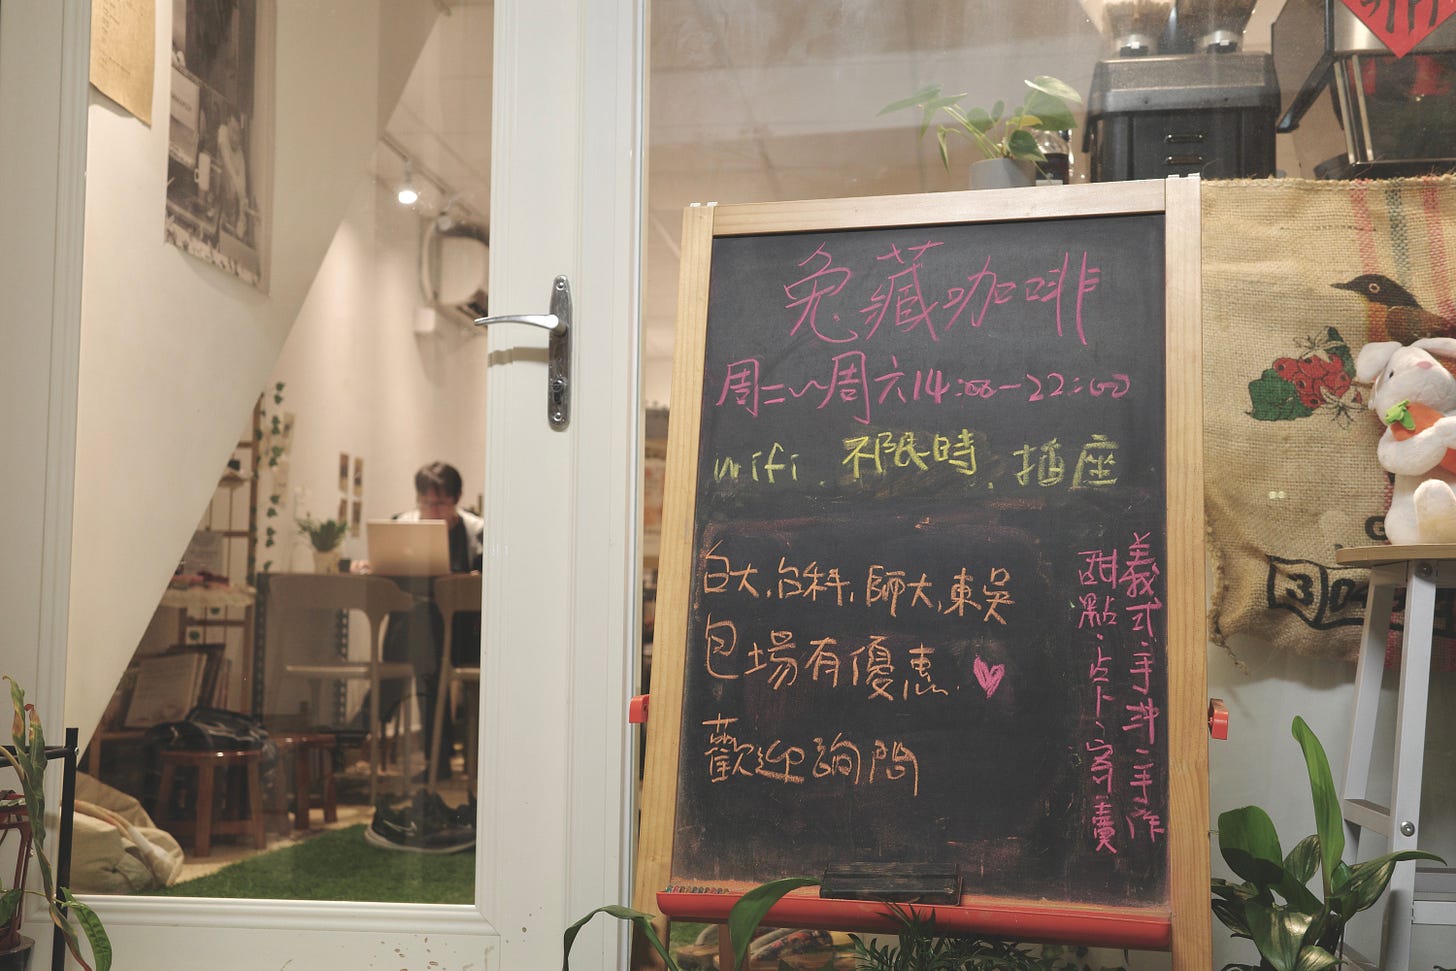 兔藏咖啡
周二~周六14:00-22:00
wifi、不限時、插座
台大,台科,師大,東吳
包場有優惠
歡迎詢問
義式、手沖、手作
甜點、占卜、寄賣
3